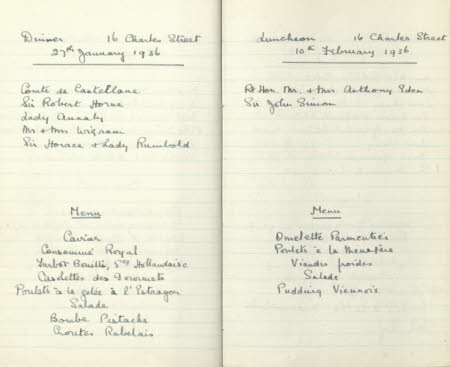 Dinner 16 Charles Street
27th January 1936
Comte de Castellane
Sir Robert Horne
Lady Annaly
Mr & Mrs Wigram
Sir Horace & Lady Rumbold
Menu
Caviar
Consommé Royal
Turbot Bouilli, Sce Hollandaise
Casolettes des
Poulets à la gelée à l'Estragon
Salade
Bombe Pistache
Croutes Rabelais
Luncheon 16 Charles Street
10th February 1936
Rt Hon. Mr. & Mrs Anthony Eden
Sir John Simon
Menu
Omelette Parmentier
Poulets à la
Viandes froides
Salade
Pudding Viennois